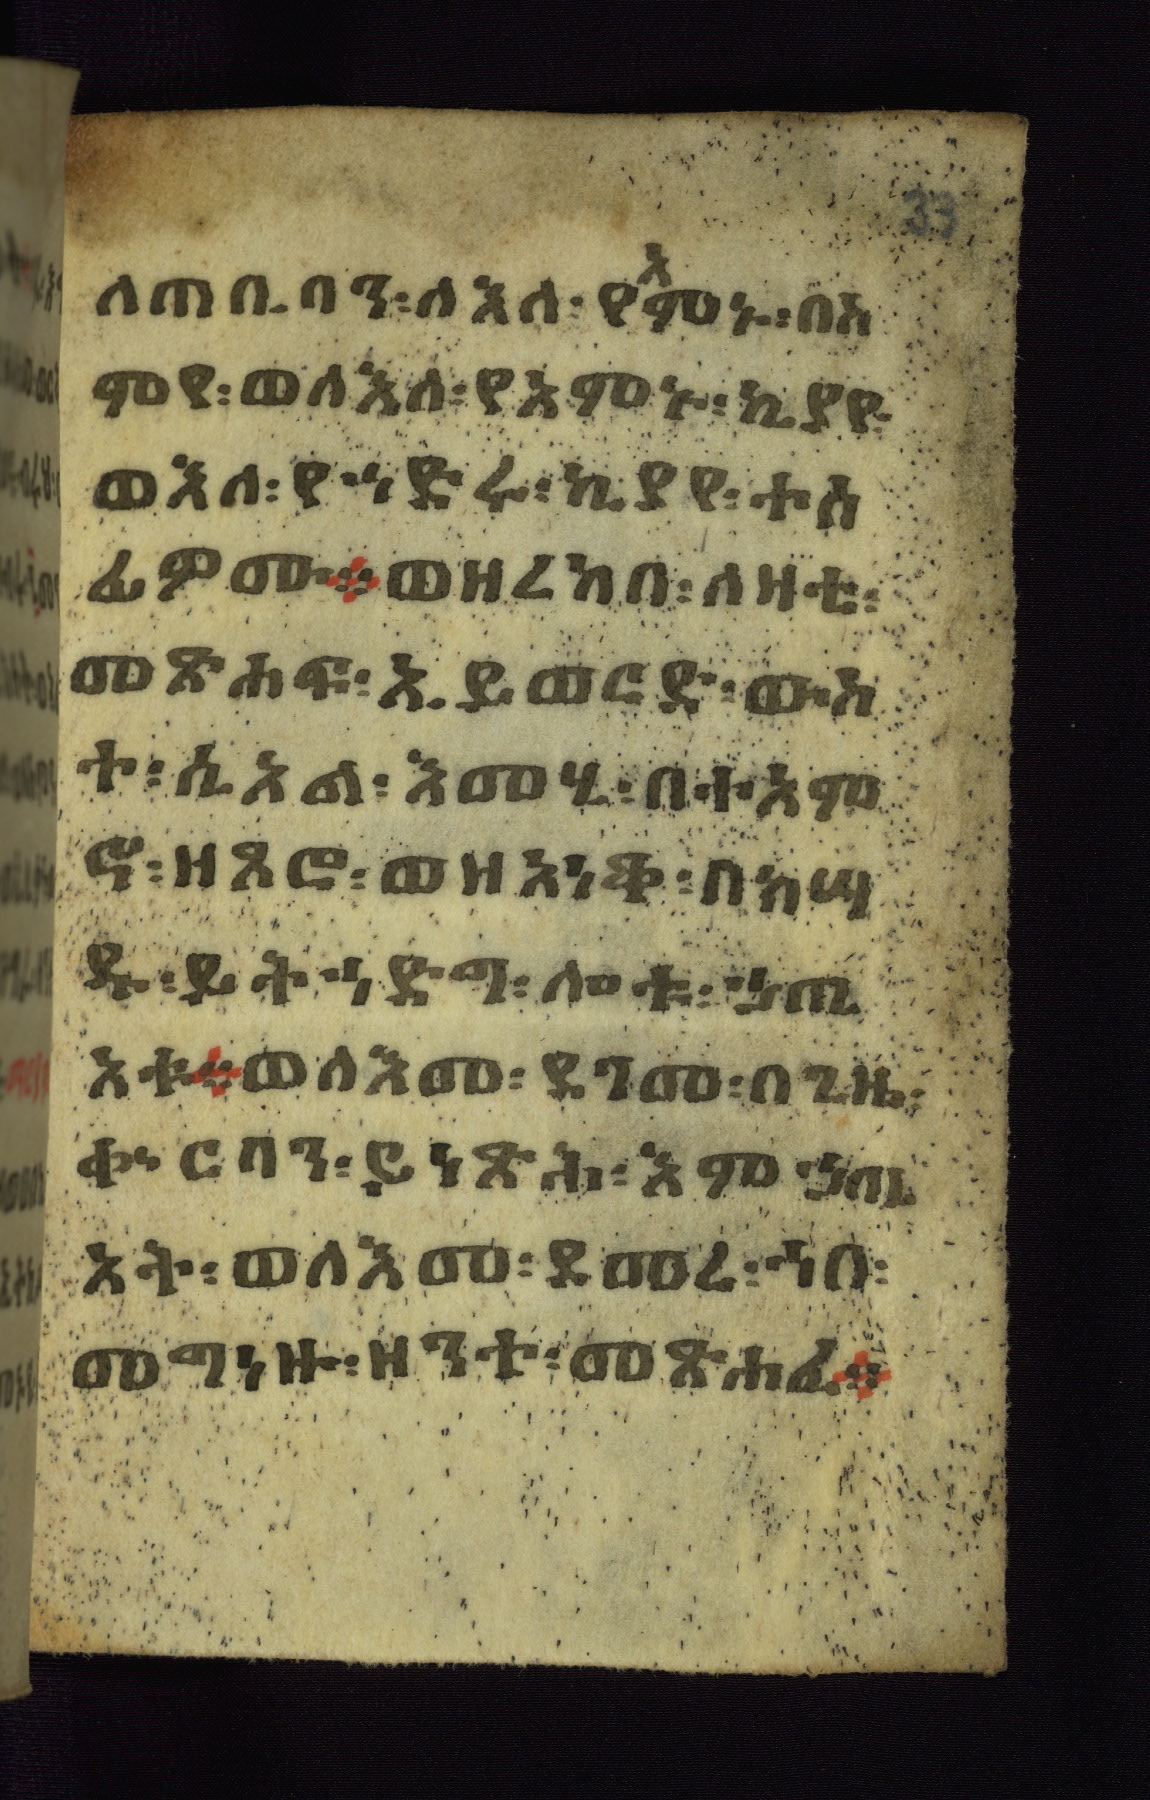 33
ለጠቢባን፡ለእለ፡የአምኑ፡በስ
ምየ፡ወለእለ፡የአምኑ፡ኪያየ
ወእለ፡የኀድሩ፡ኪያየ፡ተስ
ፊዎሙ፨ወዘረከበ፡ለዛቲ፡
መጽሐፍ፡ኢይወርድ፡ውስ
ተ፡ሲኦል፡እመሂ፡በተአም
ኖ፡ዘጾሮ፡ወዘአነቆ፡በክሣ
ዱ፡ይትኀድግ፡ሎቱ፡ኃጢ
አቱ፨ወለእመ፡ደገመ፡በጊዜ፡
ቍርባን፡ይነጽሕ፡እምኃጢ
አት፡ወለእመ፡ደመረ፡ኀበ፡
መግነዙ፡ዘንተ፡መጽሐፈ፨